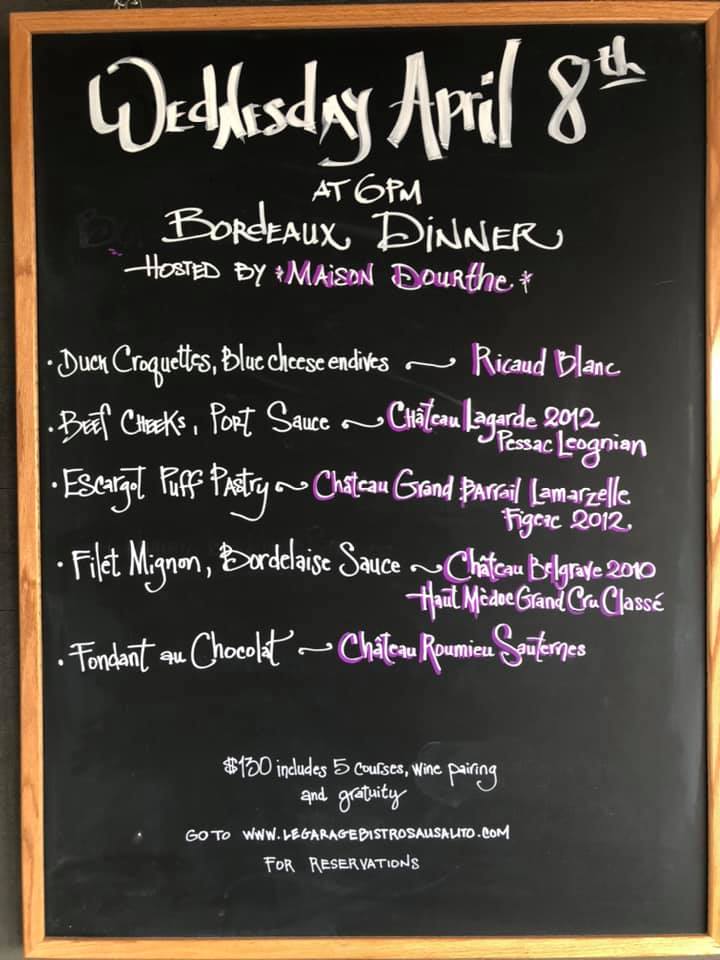 Wednesday April 8th
AT 6PM
BORDEAUX DINNER
HOSTED BY *MAISON DOURTHE*
· Duck Croquettes, Blue cheese endives ~ Ricaud Blanc
· BEEF CHEEKS, PORT SAUCE ~ CHâteau Lagarde 2012
Pessac Leognian
· Escargot Puff Pastry ~ Château Grand BArrail Lamarzelle
Figeac 2012
· Filet Mignon, Bordelaise Sauce ~ Château Belgrave 2010
Haut Mèdoc Grand Cru Classé
· Fondant au Chocolat ~ Château Roumieu Sauternes
$130 includes 5 courses, wine pairing
and gratuity
GO TO WWW.LEGARAGEBISTROSAUSALITO.COM
FOR RESERVATIONS